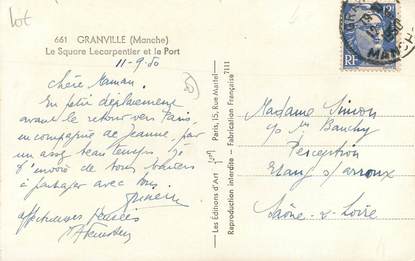 lot
661 GRANVILLE (Manche)
Le Square Lecarpentier et le Port
11-9-50
Chère Maman.
En petit déplacement
avant le retour vers Paris,
en compagnie de Jeanne, par
un assez beau temps, j'
envoie de bons baisers
à partager avec
affectueuses pensées
Les Editions d'Art
Paris, 15, Rue Martel
Reproduction interdite - Fabrication Française
7111
12F
MANCHE
Madame Simon
Perception
Etang s/ arroux
Saône-&-Loire